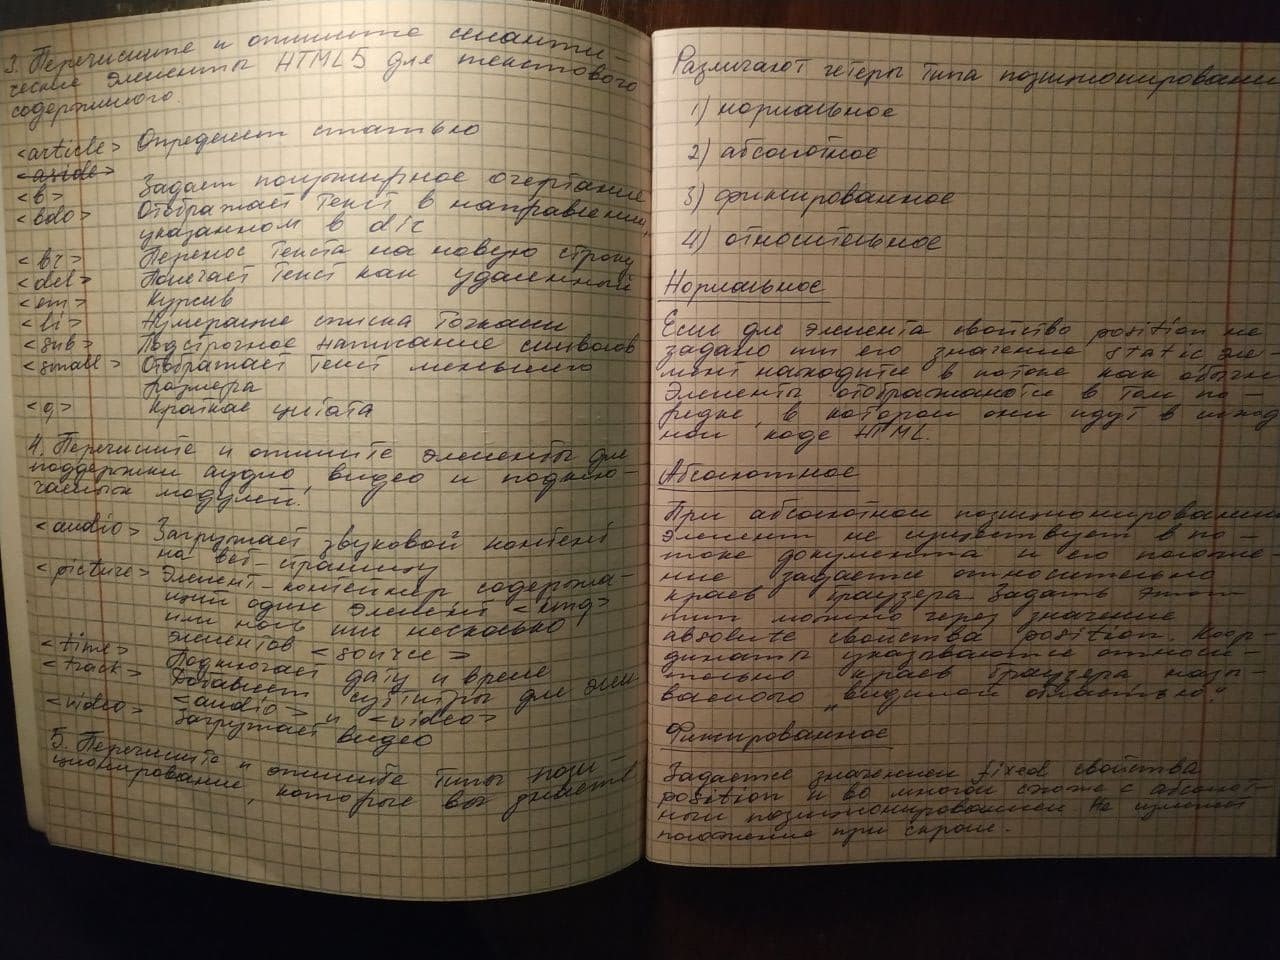 3. Перечислите и опишите семанти-
ческие элементы HTML5 для текстового
содержимого.
<article> Определяет статью
<aside>
<b> Задает полужирное очертание
<bdo> Отображает текст в направлении,
указанном в dir
<br> Перенос текста на новую строку
<del> Помечает текст как удаленный
<em> Курсив
<li> Нумерация списка точками
<sub> Подстрочное написание символов
<small> Отображает текст меньшего
размера
<q> Краткая цитата
4. Перечислите и опишите элементы для
поддержки аудио, видео и подклю-
чаемых модулей.
<audio> Загружает звуковой контент
на веб-страницу
<picture> Элемент-контейнер содержа-
щий один элемент <img>
или ноль или несколько
элементов <source>
<time> Подключает дату и время
<track> Добавляет субтитры для элем
<audio> и <video>
<video> Загружает видео
5. Перечислите и опишите типы пози-
ционирования, которые вы знаете
Различают четыре типа позиционирования
1) нормальное
2) абсолютное
3) фиксированное
4) относительное
Нормальное
Если для элемента свойство position не
задано или его значение static, эле-
мент находится в потоке как обычно
Элементы отображаются в том по-
рядке, в котором они идут в исход
ном коде HTML.
Абсолютное
При абсолютном позиционировании
элемент не существует в по-
токе документа и его положе-
ние задается относительно
краев браузера. Задать этот
тип можно через значение
absolute свойства position. Коор-
динаты указываются относи-
тельно краев браузера, назы-
ваемого „видимой областью"
Фиксированное
Задается значением fixed свойства
position и во многом схоже с абсолют-
ным позиционированием. Не изменяет
положение при скроле.